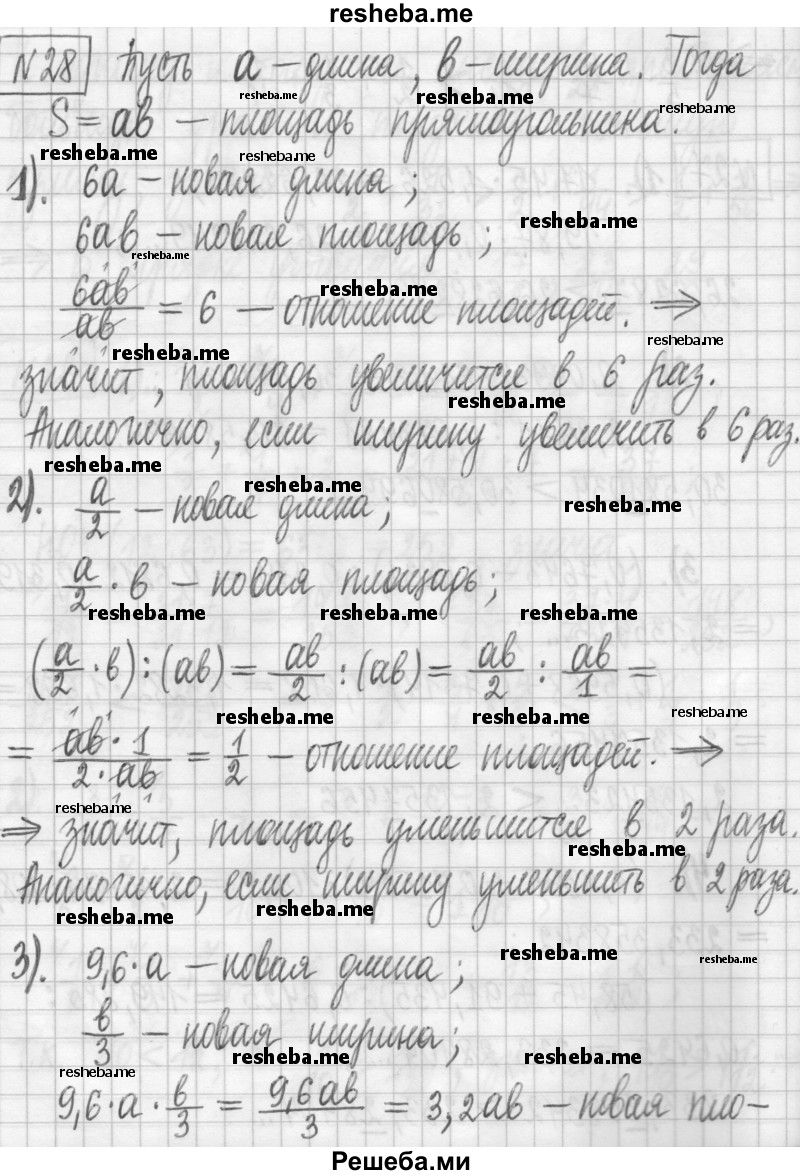 resheba.me
№28 Пусть a – длина, b – ширина. Тогда
resheba.me resheba.me resheba.me
S = ab – площадь прямоугольника.
resheba.me resheba.me
1). 6a – новая длина;
resheba.me
6ab – новая площадь;
resheba.me
resheba.me
6ab/ab = 6 – отношение площадей. ⇒
resheba.me resheba.me
значит, площадь увеличится в 6 раз.
resheba.me
Аналогично, если ширину увеличить в 6 раз.
resheba.me
2). a/2 – новая длина;
resheba.me resheba.me
a/2 · b – новая площадь;
resheba.me resheba.me resheba.me
(a/2 · b) : (ab) = ab/2 : (ab) = ab/2 : ab/1 =
resheba.me resheba.me resheba.me
= ab · 1/2 · ab = 1/2 – отношение площадей. ⇒
resheba.me
⇒ значит, площадь уменьшится в 2 раза.
resheba.me
Аналогично, если ширину уменьшить в 2 раза.
resheba.me resheba.me
3). 9,6 · a – новая длина;
resheba.me
b/3 – новая ширина;
resheba.me resheba.me resheba.me
9,6 · a · b/3 = 9,6ab/3 = 3,2ab – новая пло-
Решеба.ми